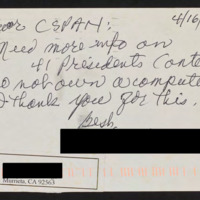 ear CSPAN: 4/16/
Need more info on
41 Presidents conte
o not own a compute
I thank you for this.
Murrieta, CA 92563